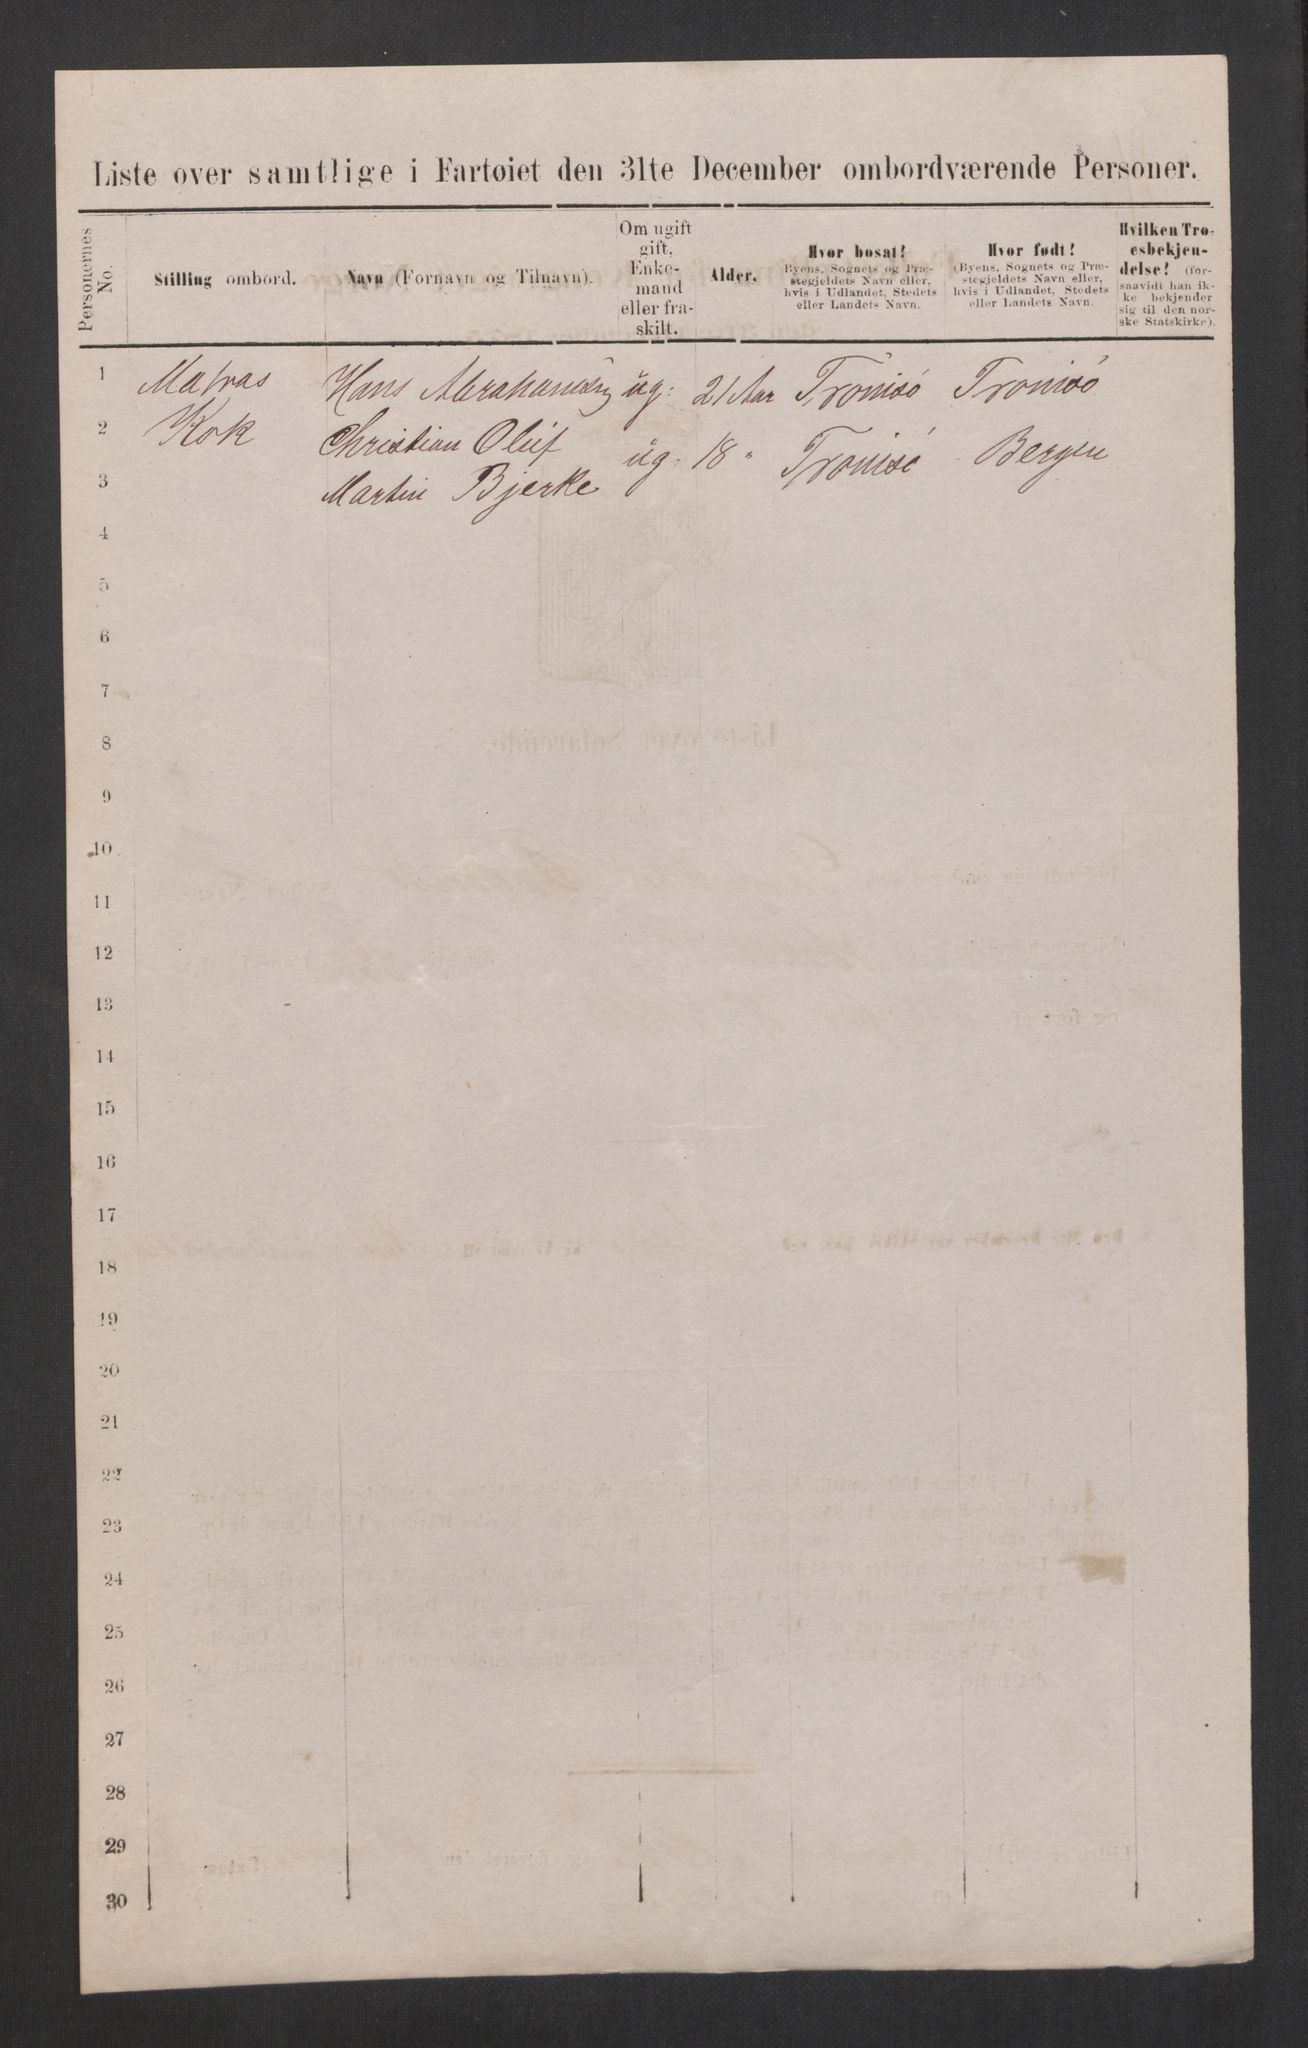 Liste over samtlige i Fartøiet den 31te December ombordværende Personer.
Personernes No.
Stilling ombord.
Navn (Fornavn og Tilnavn).
Om ugift
gift,
Enke-
mand
eller fra-
skilt.
Alder.
Hvor bosat?
Byens, Sognets og Præ-
stegjeldets Navn eller,
hvis i Udlandet, Stedets
eller Landets Navn.
Hvor født?
(Byens, Sognets og Præ-
stegjeldets Navn eller,
hvis i Udlandet, Stedets
eller Landets Navn.
Hvilken Tro-
esbekjen-
delse? (for-
saavidt han ik-
ke bekjender
sig til den nor-
ske Statskirke).
1 Matros Hans Abrahamsen ug: 21 Aar Tromsö Tromsö
2 Kok Christian Oluf ug: 18 " Tromsö Bergen
3 Martin Bjerke
4
5
6
7
8
9
10
11
12
13
14
15
16
17
18
19
20
21
22
23
24
25
26
27
28
29
30